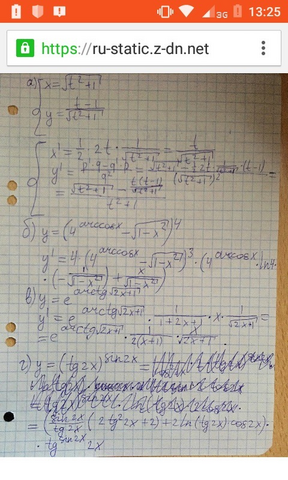 3G 13:25
https://ru-static.z-dn.net
а) x = √(t²+1)
y = (t-1)/√(t²+1)
x' = 1/2 · 2t · 1/√(t²+1) = t/√(t²+1)
y' = (p'q - q'p)/q² = (√(t²+1) - 1/2 · 2t · 1/√(t²+1) · (t-1))/(√(t²+1))² =
= (√(t²+1) - t(t-1)/√(t²+1))/(t²+1)
б) y = (4^arccosx - √(1-x²))⁴
y' = 4 · (4^arccosx - √(1-x²))³ · (4^arccosx · ln4 ·
· (-1/√(1-x²)) + x/√(1-x²))
в) y = e^arctg√(2x+1)
y' = e^arctg√(2x+1) · 1/(1+2x+1) · x · 1/√(2x+1) =
= e^arctg√(2x+1) · 1/2(x+1) · 1/√(2x+1)
г) y = (tg2x)^sin2x =
= (sin2x/tg2x (2tg²2x+2) + 2ln(tg2x) · cos2x) ·
· tg^sin2x 2x